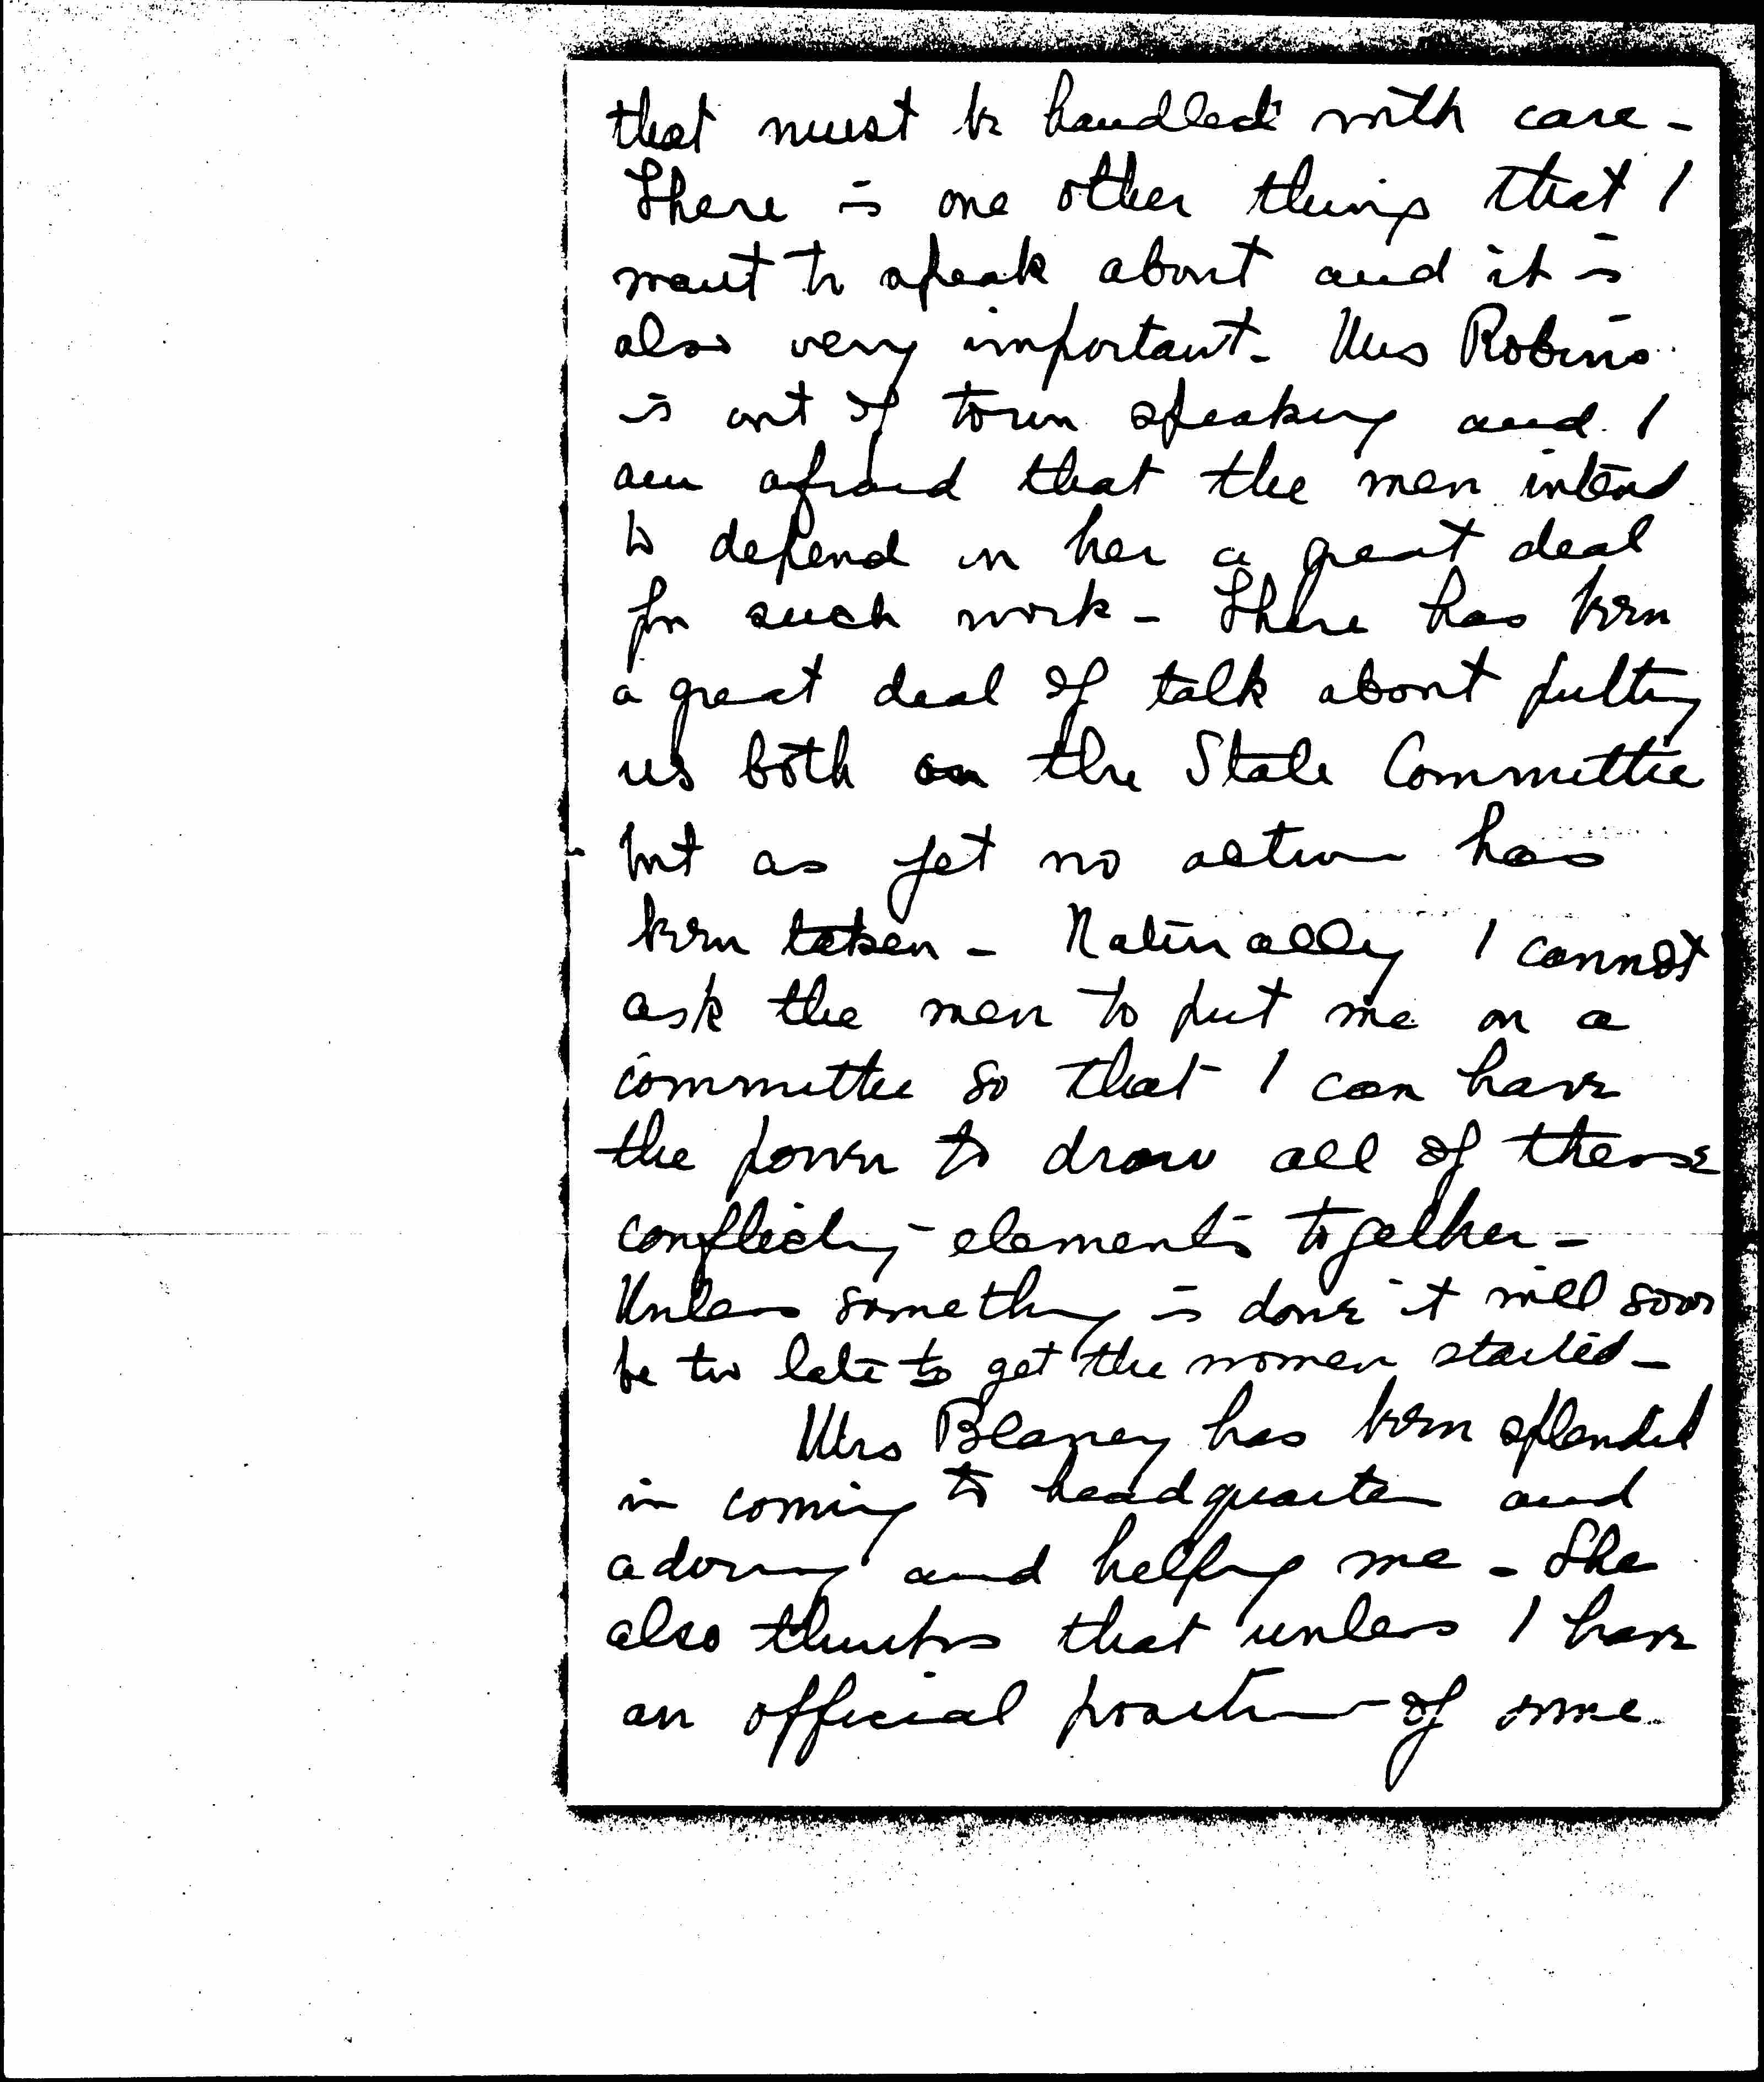 that must be handled with care -
There is one other thing that I
want to speak about and it is
also very important - Mrs Robins
is out of town speaking and I
am afraid that the men intend
to depend on her a great deal
for such work - There has been
a great deal of talk about putting
us both on the State Committee
but as yet no action has
been taken - Naturally I cannot
ask the men to put me on a
committee so that I can have
the power to draw all of these
conflicting elements together -
Unless something is done it will soon
be too late to get the women started -
Mrs Blaney has been splendid
in coming to headquarters and
advising and helping me - She
also thinks that unless I have
an official position of some